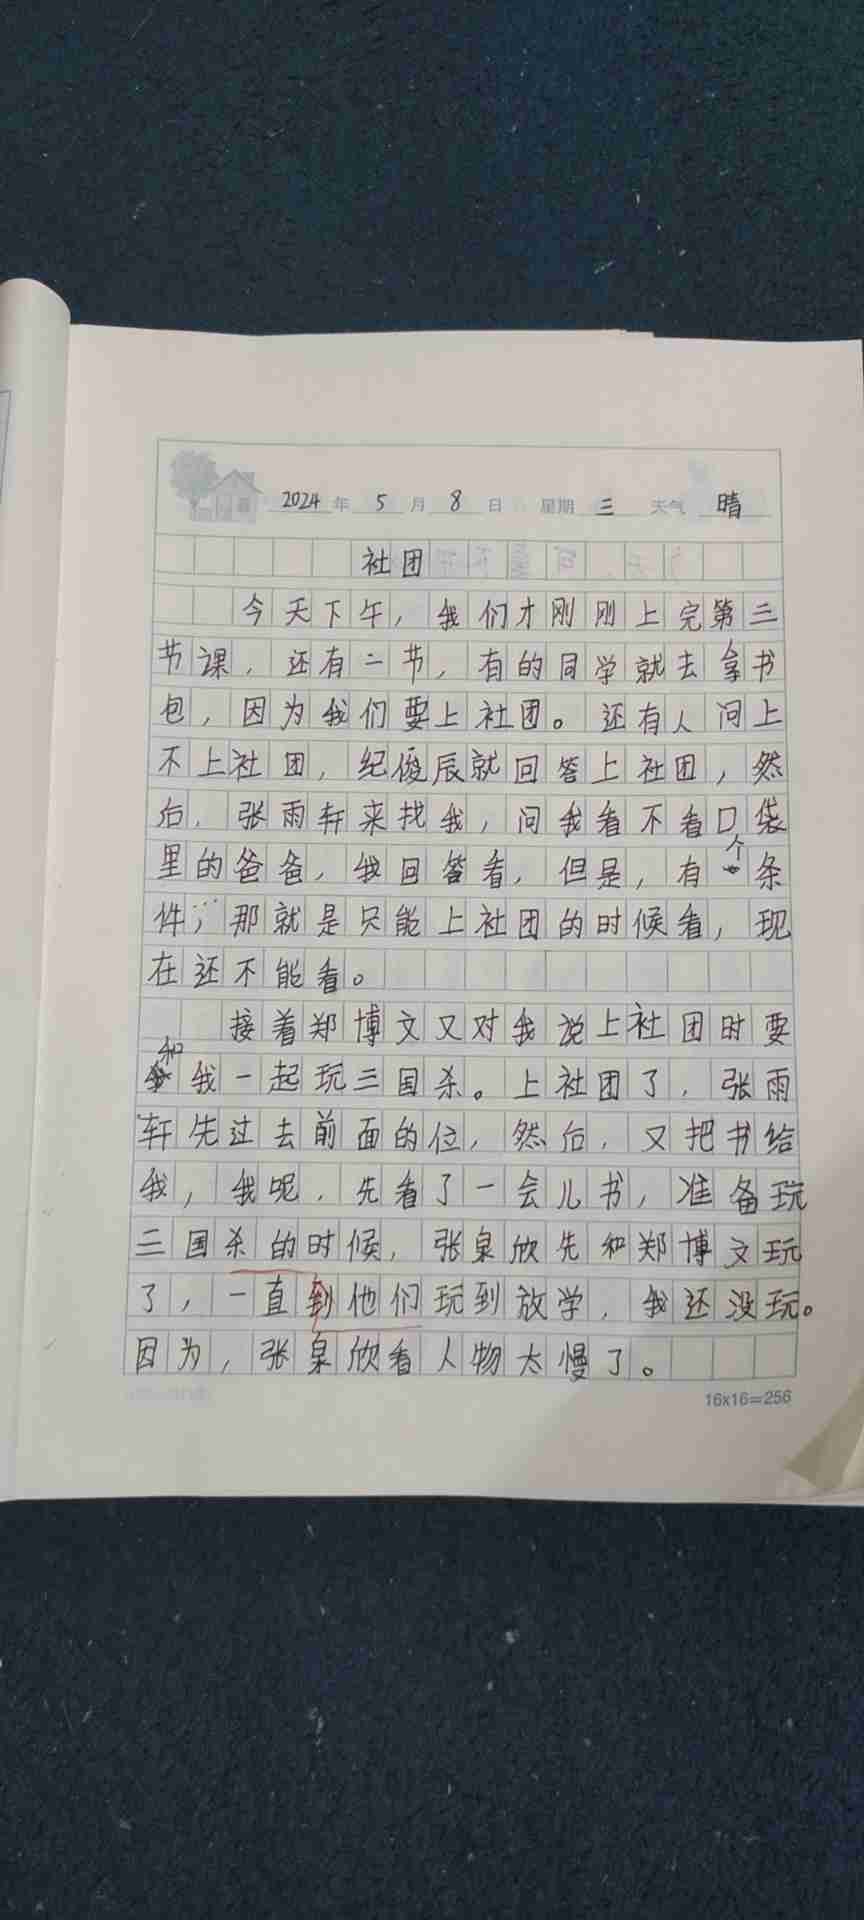 2024年5月8日 星期三 天气 晴
社团
今天下午，我们才刚刚上完第三
节课，还有二节，有的同学就去拿书
包，因为我们要上社团。还有人问上
不上社团，纪俊辰就回答上社团，然
后，张雨轩来找我，问我看不看口袋
里的爸爸，我回答看，但是，有个条
件，那就是只能上社团的时候看，现
在还不能看。
接着郑博文又对我说上社团时要
和我一起玩三国杀。上社团了，张雨
轩先过去前面的位，然后，又把书给
我，我呢，先看了一会儿书，准备玩
三国杀的时候，张泉欣先和郑博文玩
了，一直到他们玩到放学，我还没玩。
因为，张泉欣看人物太慢了。
16x16=256